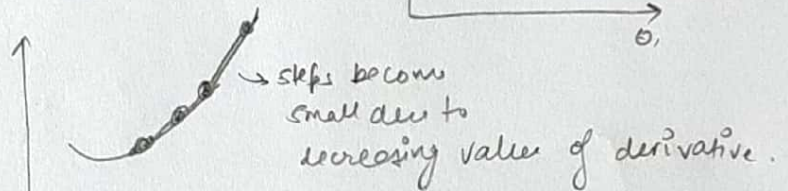 θ₁
→ steps become
small due to
decreasing value of derivative.